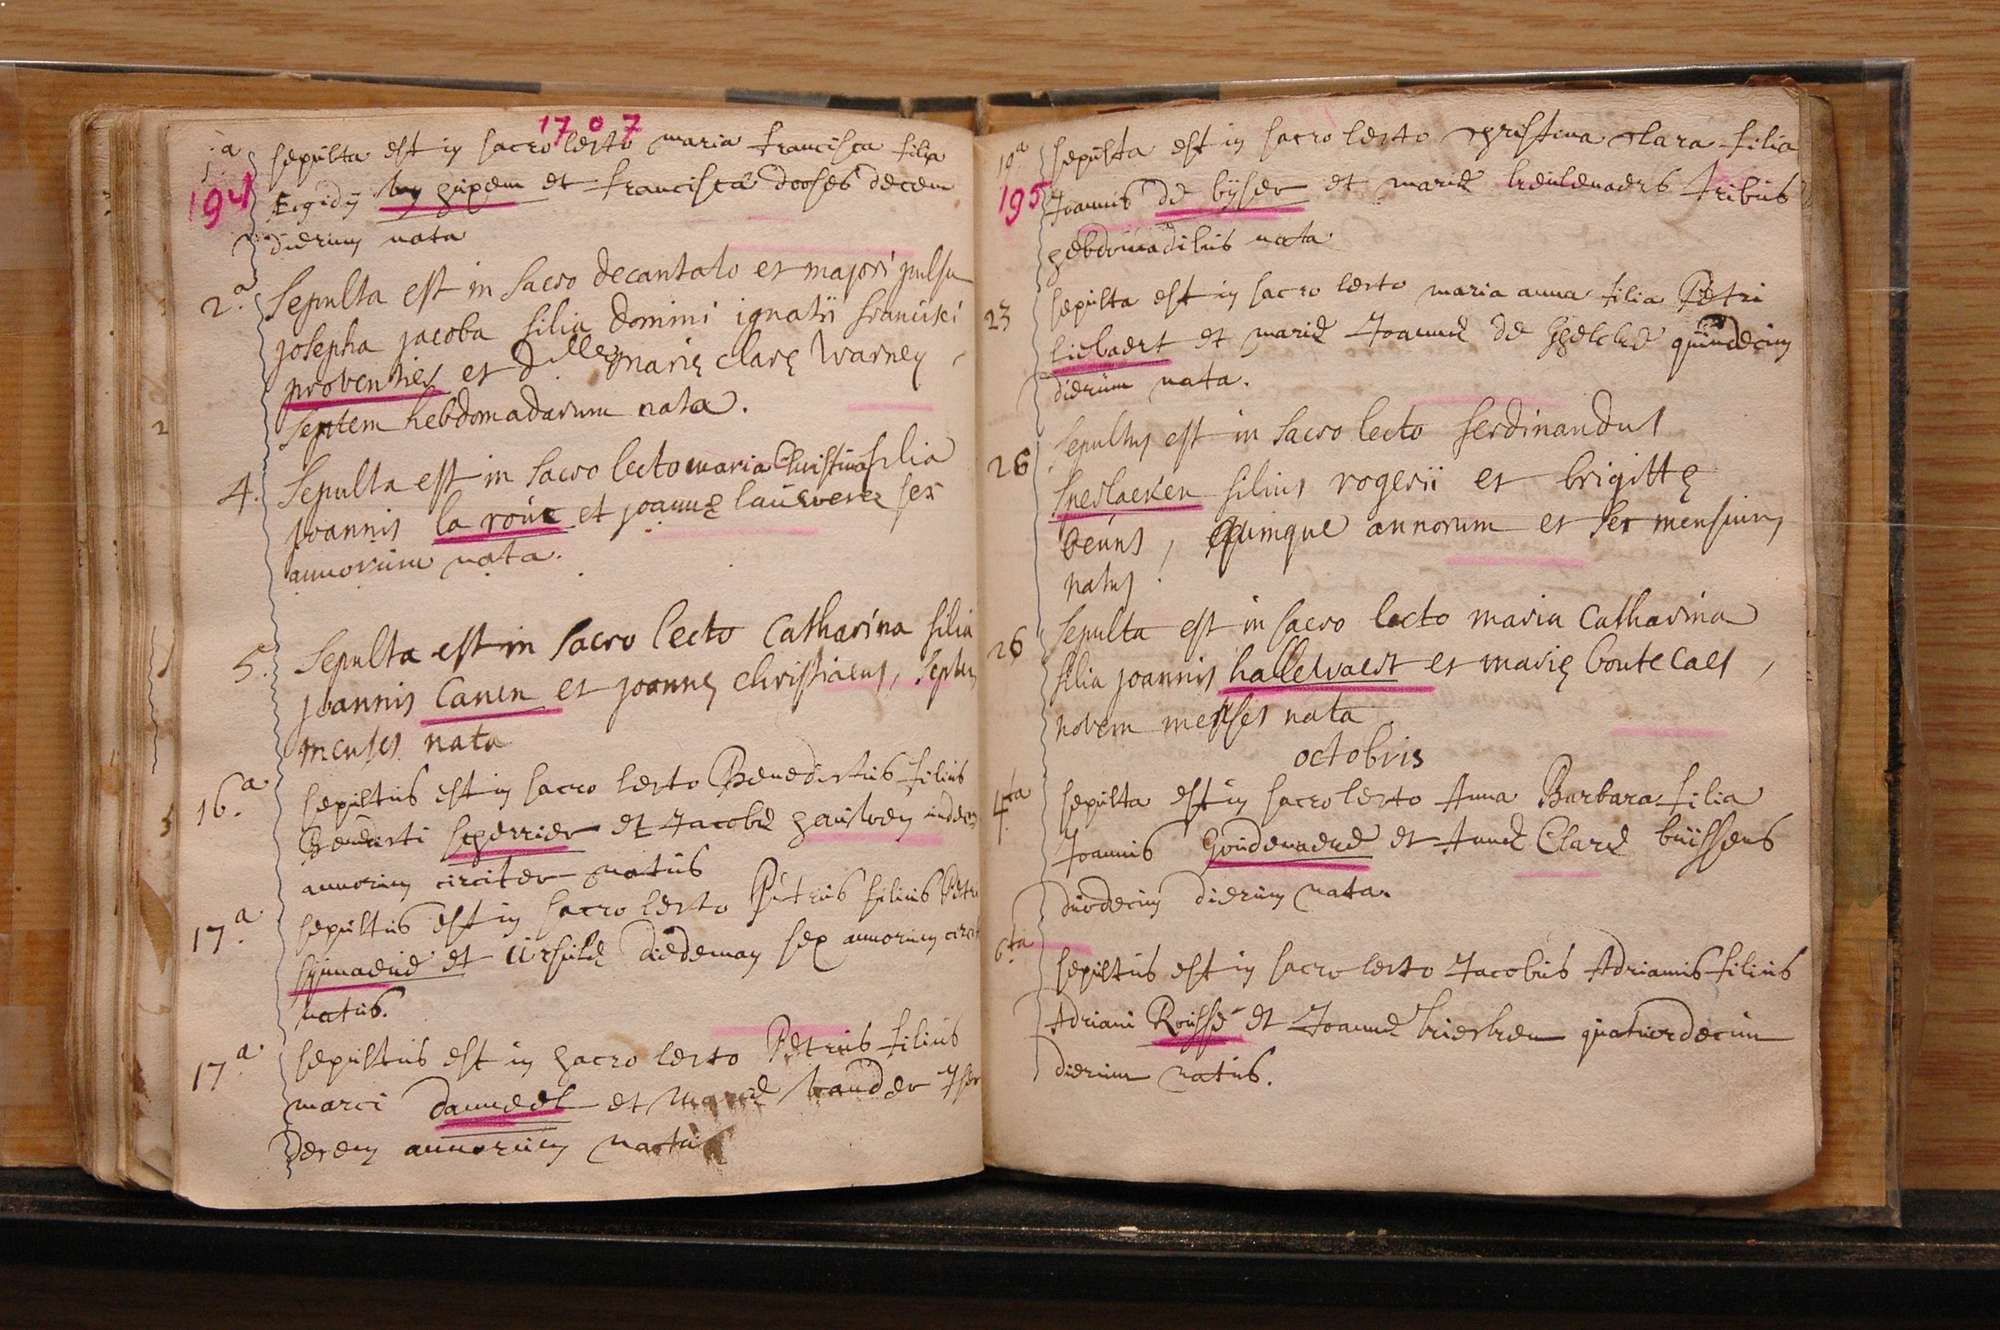 1707
194
1.a sepulta est in sacro lecto maria francisca filia
Egidij et francisca dooses decem
dierum nata
2.a Sepulta est in sacro decantato et majori pulsu
josepha jacoba filia domini ignatii francisci
proventies et d'lle marię clarę Warney,
septem hebdomadarum nata.
4. Sepulta est in sacro lecto maria Christina filia
joannis la roúe et joannę lauwere sex
annorum nata.
5. Sepulta est in sacro lecto Catharina filia
joannis Canen et joannę christiaens, septem
menses nata
16.a sepultus est in sacro lecto Benedictus filius
Benedicti scherrier et Jacobę
annorum circiter natus
17.a sepultus est in sacro lecto Petrus filius Petri
et Ursulę diedeman sex annorum circit
natus.
17.a sepultus est in sacro lecto Petrus filius
marci danneel et Marię vander
decem annorum natus
195
19a sepulta est in sacro lecto Christina Clara filia
Joannis de bÿser et marię tribus
hebdomadibus nata
23 sepulta est in sacro lecto maria anna filia Petri
liebaert et marię Joannę de quindecim
dierum nata.
26 sepultus est in sacro lecto ferdinandus
sneslaeken filius rogerii et brigittę
beuns, quinque annorum et sex mensium
natus.
26 Sepulta est in sacro lecto maria Catharina
filia joannis hallewaert et marię boutecaes,
novem menses nata.
octobris
4ta sepulta est in sacro lecto Anna Barbara filia
Joannis Goudenaere et Annę Clarę buÿssens
duodecim dierum nata.
6ta sepultus est in sacro lecto Jacobus Adrianus filius
Adriani Roussé et Joannę quatuordecim
dierum natus.